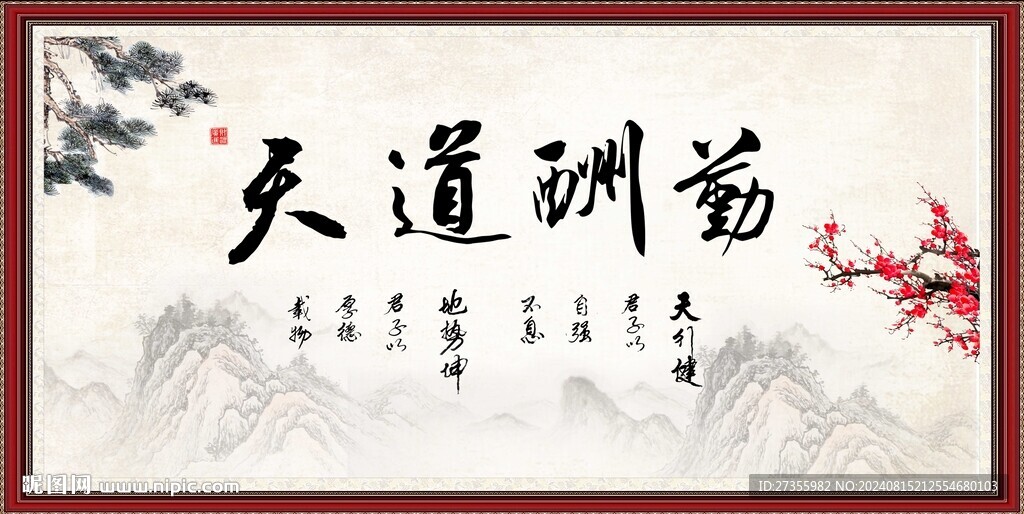 天道酬勤
天行健
君子以
自强
不息
地势坤
君子以
厚德
载物
昵图网 www.nipic.com
ID:27355982 NO:20240815212554680103